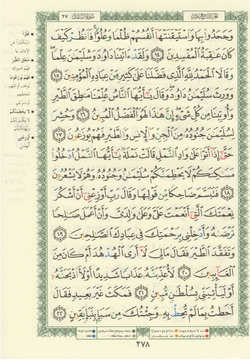 وَجَحَدُوا۟ بِهَا وَٱسْتَيْقَنَتْهَآ أَنفُسُهُمْ ظُلْمًا وَعُلُوًّا فَٱنظُرْ كَيْفَ
كَانَ عَٰقِبَةُ ٱلْمُفْسِدِينَ ١٤ وَلَقَدْ ءَاتَيْنَا دَاوُۥدَ وَسُلَيْمَٰنَ عِلْمًا
وَقَالَا ٱلْحَمْدُ لِلَّهِ ٱلَّذِى فَضَّلَنَا عَلَىٰ كَثِيرٍ مِّنْ عِبَادِهِ ٱلْمُؤْمِنِينَ ١٥
وَوَرِثَ سُلَيْمَٰنُ دَاوُۥدَ وَقَالَ يَٰٓأَيُّهَا ٱلنَّاسُ عُلِّمْنَا مَنطِقَ ٱلطَّيْرِ
وَأُوتِينَا مِن كُلِّ شَىْءٍ إِنَّ هَٰذَا لَهُوَ ٱلْفَضْلُ ٱلْمُبِينُ ١٦ وَحُشِرَ
لِسُلَيْمَٰنَ جُنُودُهُۥ مِنَ ٱلْجِنِّ وَٱلْإِنسِ وَٱلطَّيْرِ فَهُمْ يُوزَعُونَ ١٧
حَتَّىٰٓ إِذَآ أَتَوْا۟ عَلَىٰ وَادِ ٱلنَّمْلِ قَالَتْ نَمْلَةٌ يَٰٓأَيُّهَا ٱلنَّمْلُ ٱدْخُلُوا۟
مَسَٰكِنَكُمْ لَا يَحْطِمَنَّكُمْ سُلَيْمَٰنُ وَجُنُودُهُۥ وَهُمْ لَا يَشْعُرُونَ
١٨ فَتَبَسَّمَ ضَاحِكًا مِّن قَوْلِهَا وَقَالَ رَبِّ أَوْزِعْنِىٓ أَنْ أَشْكُرَ
نِعْمَتَكَ ٱلَّتِىٓ أَنْعَمْتَ عَلَىَّ وَعَلَىٰ وَٰلِدَىَّ وَأَنْ أَعْمَلَ صَٰلِحًا
تَرْضَىٰهُ وَأَدْخِلْنِى بِرَحْمَتِكَ فِى عِبَادِكَ ٱلصَّٰلِحِينَ ١٩
وَتَفَقَّدَ ٱلطَّيْرَ فَقَالَ مَا لِىَ لَآ أَرَى ٱلْهُدْهُدَ أَمْ كَانَ مِنَ
ٱلْغَآئِبِينَ ٢٠ لَأُعَذِّبَنَّهُۥ عَذَابًا شَدِيدًا أَوْ لَأَا۟ذْبَحَنَّهُۥٓ
أَوْ لَيَأْتِيَنِّى بِسُلْطَٰنٍ مُّبِينٍ ٢١ فَمَكَثَ غَيْرَ بَعِيدٍ فَقَالَ
أَحَطتُ بِمَا لَمْ تُحِطْ بِهِۦ وَجِئْتُكَ مِن سَبَإٍۭ بِنَبَإٍ يَقِينٍ ٢٢
٣٧٨